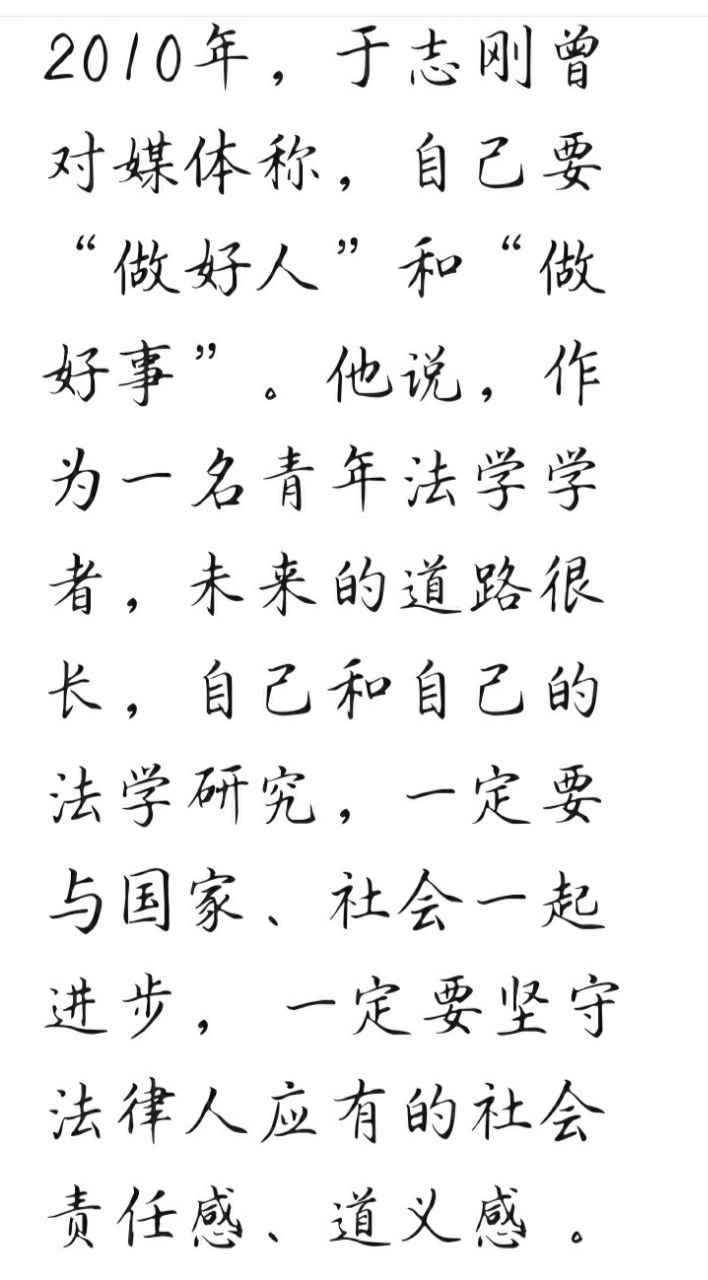 2010年，于志刚曾
对媒体称，自己要
“做好人”和“做
好事”。他说，作
为一名青年法学学
者，未来的道路很
长，自己和自己的
法学研究，一定要
与国家、社会一起
进步，一定要坚守
法律人应有的社会
责任感、道义感。